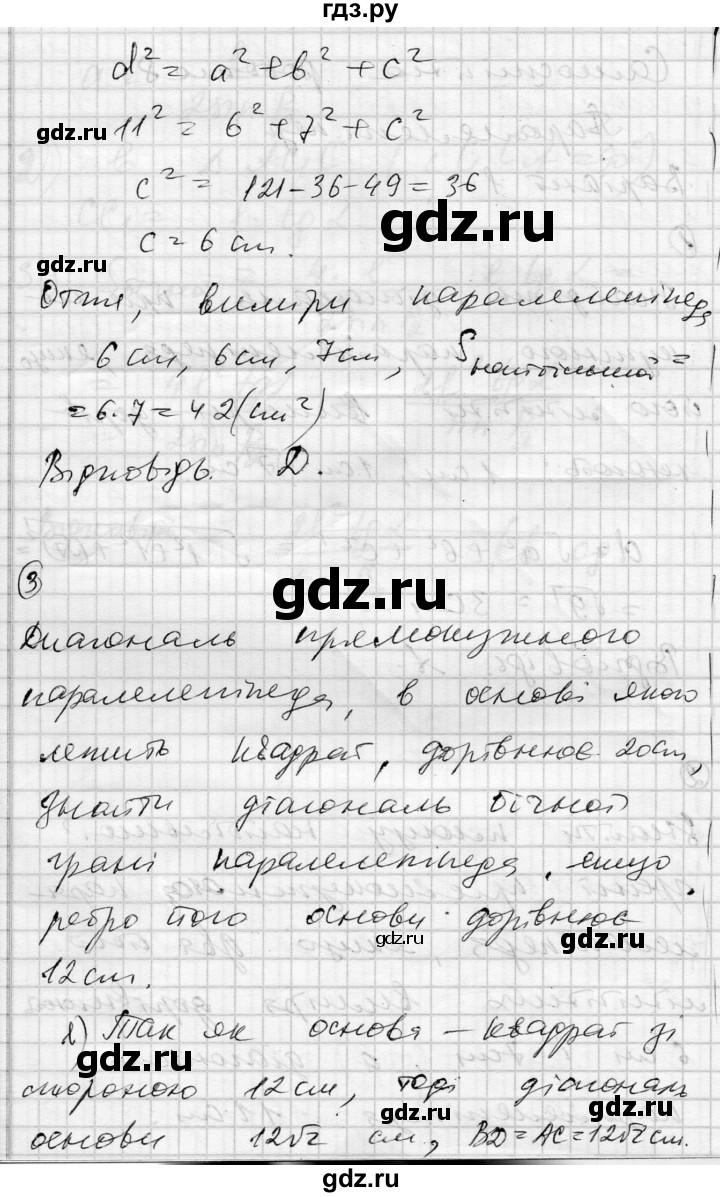 гдз.ру
d² = a² + b² + c²
11² = 6² + 7² + c²
c² = 121 - 36 - 49 = 36
c = 6 см.
Отже, виміри паралелепіпеда
6 см, 6 см, 7 см, Sнайбільшої =
= 6·7 = 42 (см²)
Відповідь. Д.
③
Диагональ прямокутного
паралелепіпеда, в основі якого
лежить квадрат, дорівнює 20 см,
знайти діагональ бічної
грані паралелепіпеда, якщо
ребро його основи дорівнює
12 см.
Так як основа – квадрат зі
стороною 12 см, тоді діагональ
основи 12√2 см, BD = AC = 12√2 см.
gdz.ru
gdz.ru
gdz.ru
gdz.ru
gdz.ru
gdz.ru
gdz.ru
gdz.ru
gdz.ru
gdz.ru
gdz.ru